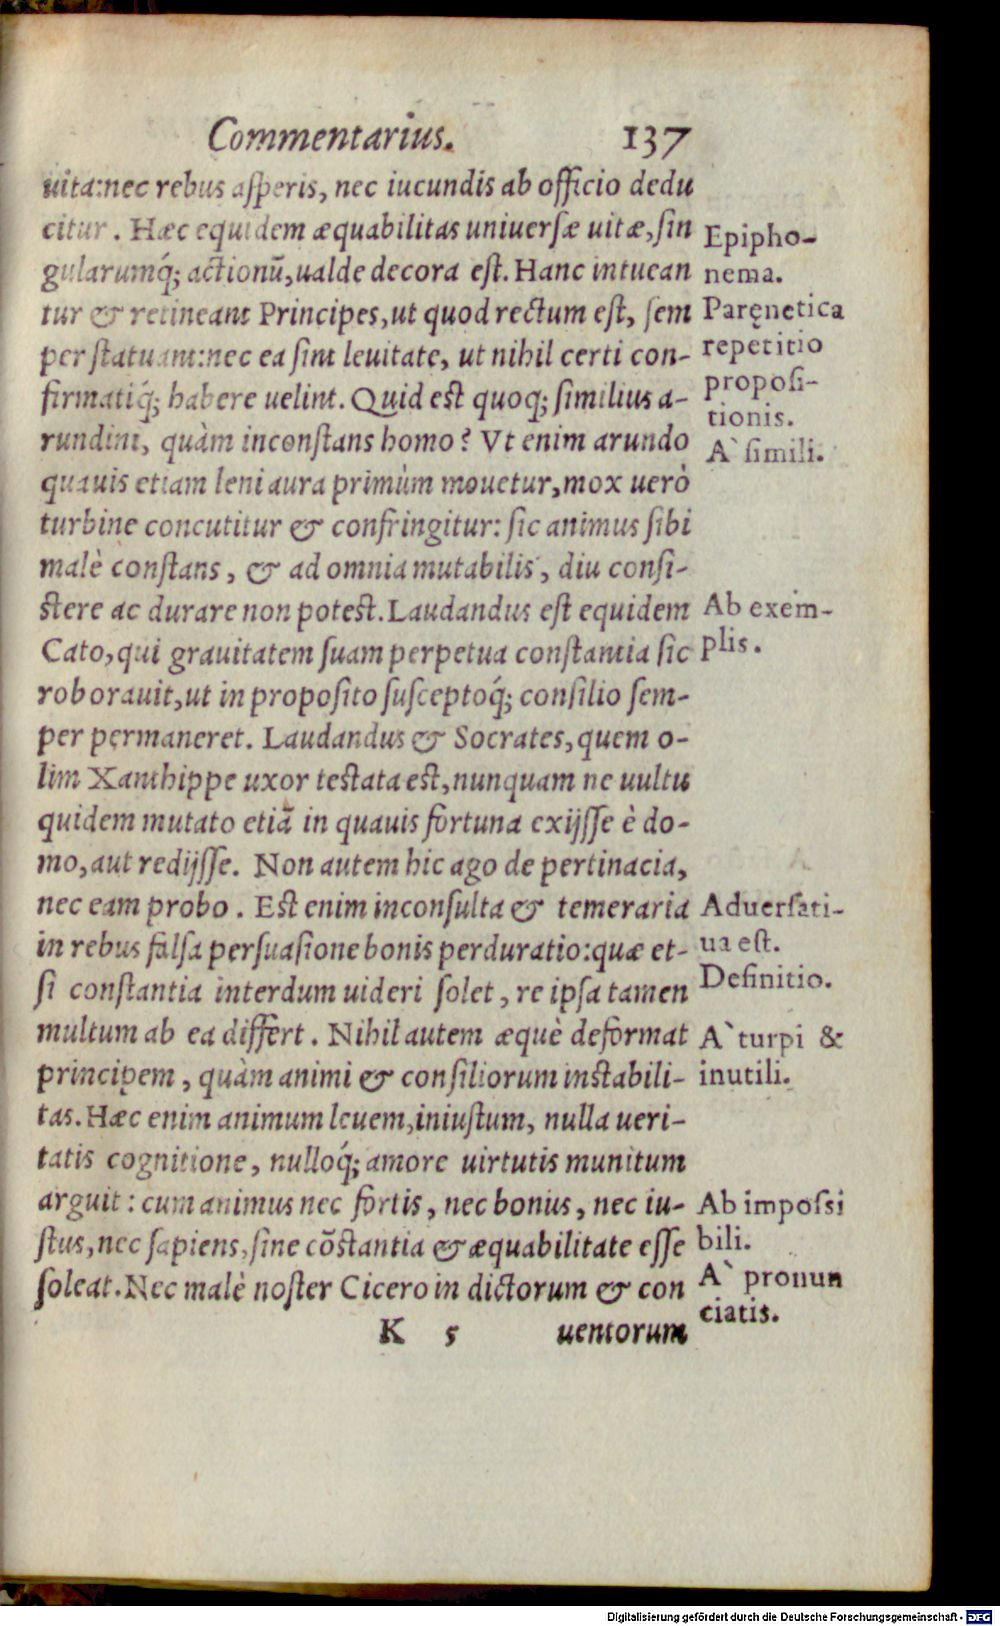 Commentarius. 137
uita:nec rebus asperis, nec iucundis ab officio dedu
citur. Hæc equidem æquabilitas uniuersæ uitæ, sin
gularumq́; actionũ, ualde decora est. Hanc intuean
tur & retineant Principes, ut quod rectum est, sem
per statuant:nec ea sint leuitate, ut nihil certi con-
firmatiq́; habere uelint. Quid est quoq; similius a-
rundini, quàm inconstans homo? Vt enim arundo
quauis etiam leni aura primùm mouetur, mox uerò
turbine concutitur & confringitur: sic animus sibi
malè constans, & ad omnia mutabilis, diu consi-
stere ac durare non potest. Laudandus est equidem
Cato, qui grauitatem suam perpetua constantia sic
roborauit, ut in proposito susceptoq́; consilio sem-
per permaneret. Laudandus & Socrates, quem o-
lim Xanthippe uxor testata est, nunquam ne uultu
quidem mutato etiã in quauis fortuna exijsse è do-
mo, aut redijsse. Non autem hic ago de pertinacia,
nec eam probo. Est enim inconsulta & temeraria
in rebus falsa persuasione bonis perduratio: quæ et-
si constantia interdum uideri solet, re ipsa tamen
multum ab ea differt. Nihil autem æquè deformat
principem, quàm animi & consiliorum instabili-
tas. Hæc enim animum leuem, iniustum, nulla ueri-
tatis cognitione, nulloq́; amore uirtutis munitum
arguit: cum animus nec fortis, nec bonus, nec iu-
stus, nec sapiens, sine cõstantia & æquabilitate esse
soleat. Nec malè noster Cicero in dictorum & con
K 5 uentorum
Epipho-
nema.
Paręnetica
repetitio
proposi-
tionis.
A` simili.
Ab exem-
plis.
Aduersati-
ua est.
Definitio.
A` turpi &
inutili.
Ab impossi
bili.
A` pronun
ciatis.
Digitalisierung gefördert durch die Deutsche Forschungsgemeinschaft - DFG